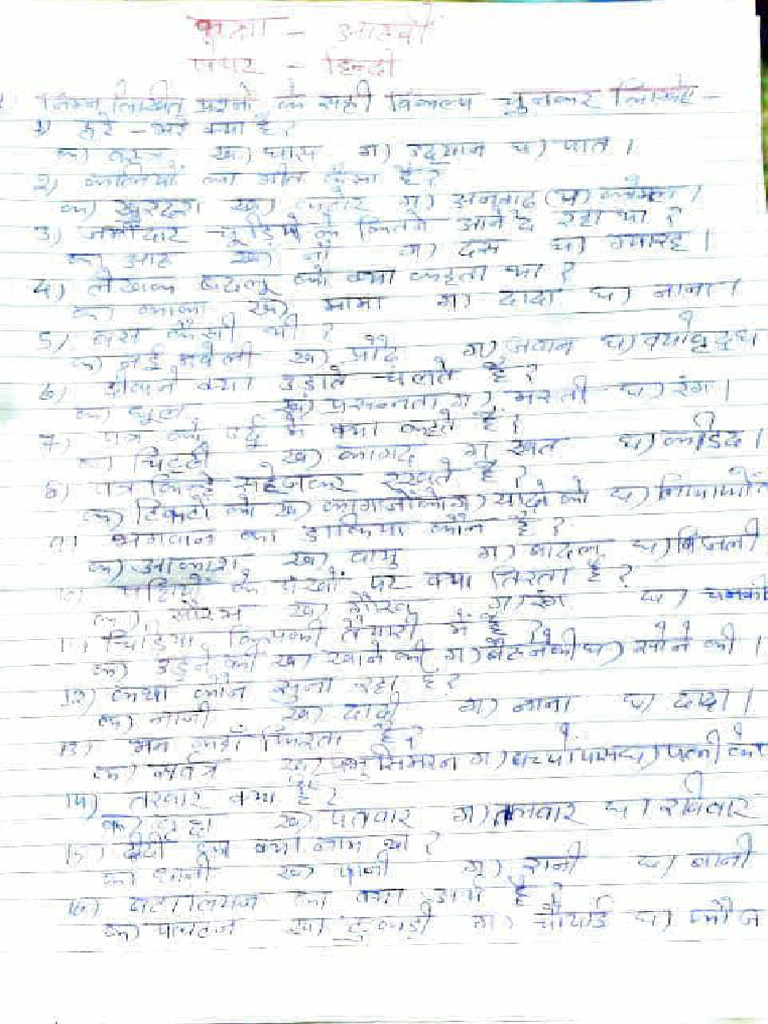 कक्षा - आठवीं
पेपर - हिन्दी
निम्न लिखित प्रश्नों के सही विकल्प चुनकर लिखिए -
1) हरे - भरे क्या है?
क) वस्त्र ख) घास ग) उद्यान घ) पात।
2) कलियों का गात कैसा है?
क) खुरदरा ख) कठोर ग) अनुवाद घ) कोमल।
3) जमींदार चूड़ियों के कितने आने दे रहा था?
क) आठ ख) नौ ग) दस घ) ग्यारह।
4) लेखक बदलू को क्या कहता था?
क) काका ख) मामा ग) दादा घ) नाना।
5) बस कैसी थी?
क) नई नवेली ख) प्रौढ़ ग) जवान घ) वयोवृद्ध
6) दीवाने क्या उड़ाते चलते हैं?
क) धूल ख) प्रसन्नता ग) मस्ती घ) रंग।
7) पत्र को उर्दू में क्या कहते हैं?
क) चिट्ठी ख) कागद ग) खत घ) कीडद।
8) पत्र किन्हें सहेजकर रखते हैं?
क) टिकटों को ख) कागजों को ग) यादों को घ)
9) भगवान का डाकिया कौन है?
क) आकाश ख) वायु ग) बादल घ) बिजली
10) पक्षियों के पंखों पर क्या तिरता है?
क) सौरभ ख) ग) रंग घ)
11) चिड़िया किसकी तैयारी में है?
क) उड़ने की ख) खाने की ग) बैठने की घ) सोने की।
12) कथा कौन सुना रहा है?
क) नानी ख) दादी ग) नाना घ) दादा।
13) मन कहाँ फिरता है?
क) सर्वत्र ख) प्रभु सिमरन ग) बच्चों पास घ) पत्नी के
14) तरवार क्या है?
क) ख) पतवार ग) तलवार घ) रविवार
15) दीदी का क्या नाम था?
क) धानी ख) पानी ग) रानी घ) बानी
16) बटालियन का क्या अर्थ है?
क) पलटन ख) टुकड़ी ग) चौथाई घ) फौज